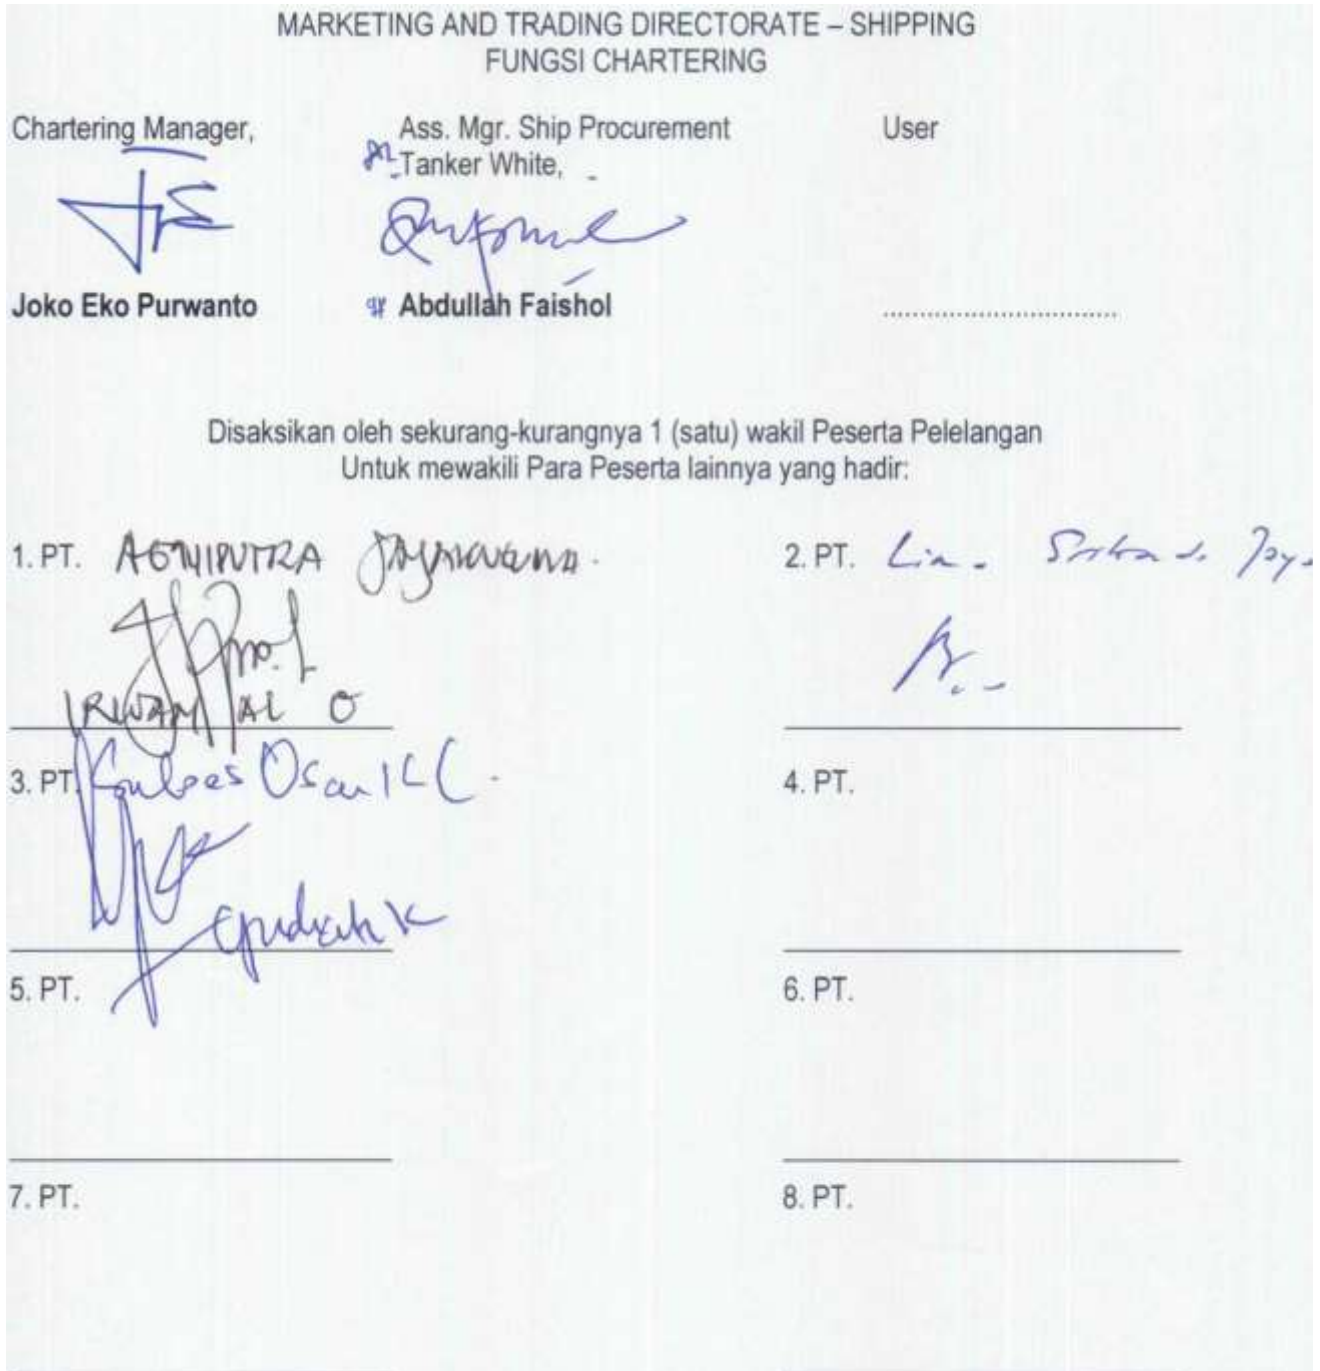 MARKETING AND TRADING DIRECTORATE – SHIPPING
FUNGSI CHARTERING
Chartering Manager,
Ass. Mgr. Ship Procurement
Tanker White,
User
Joko Eko Purwanto
Abdullah Faishol
..............................
Disaksikan oleh sekurang-kurangnya 1 (satu) wakil Peserta Pelelangan
Untuk mewakili Para Peserta lainnya yang hadir:
1. PT.
2. PT.
IRWAN AL O
3. PT.
4. PT.
5. PT.
6. PT.
7. PT.
8. PT.